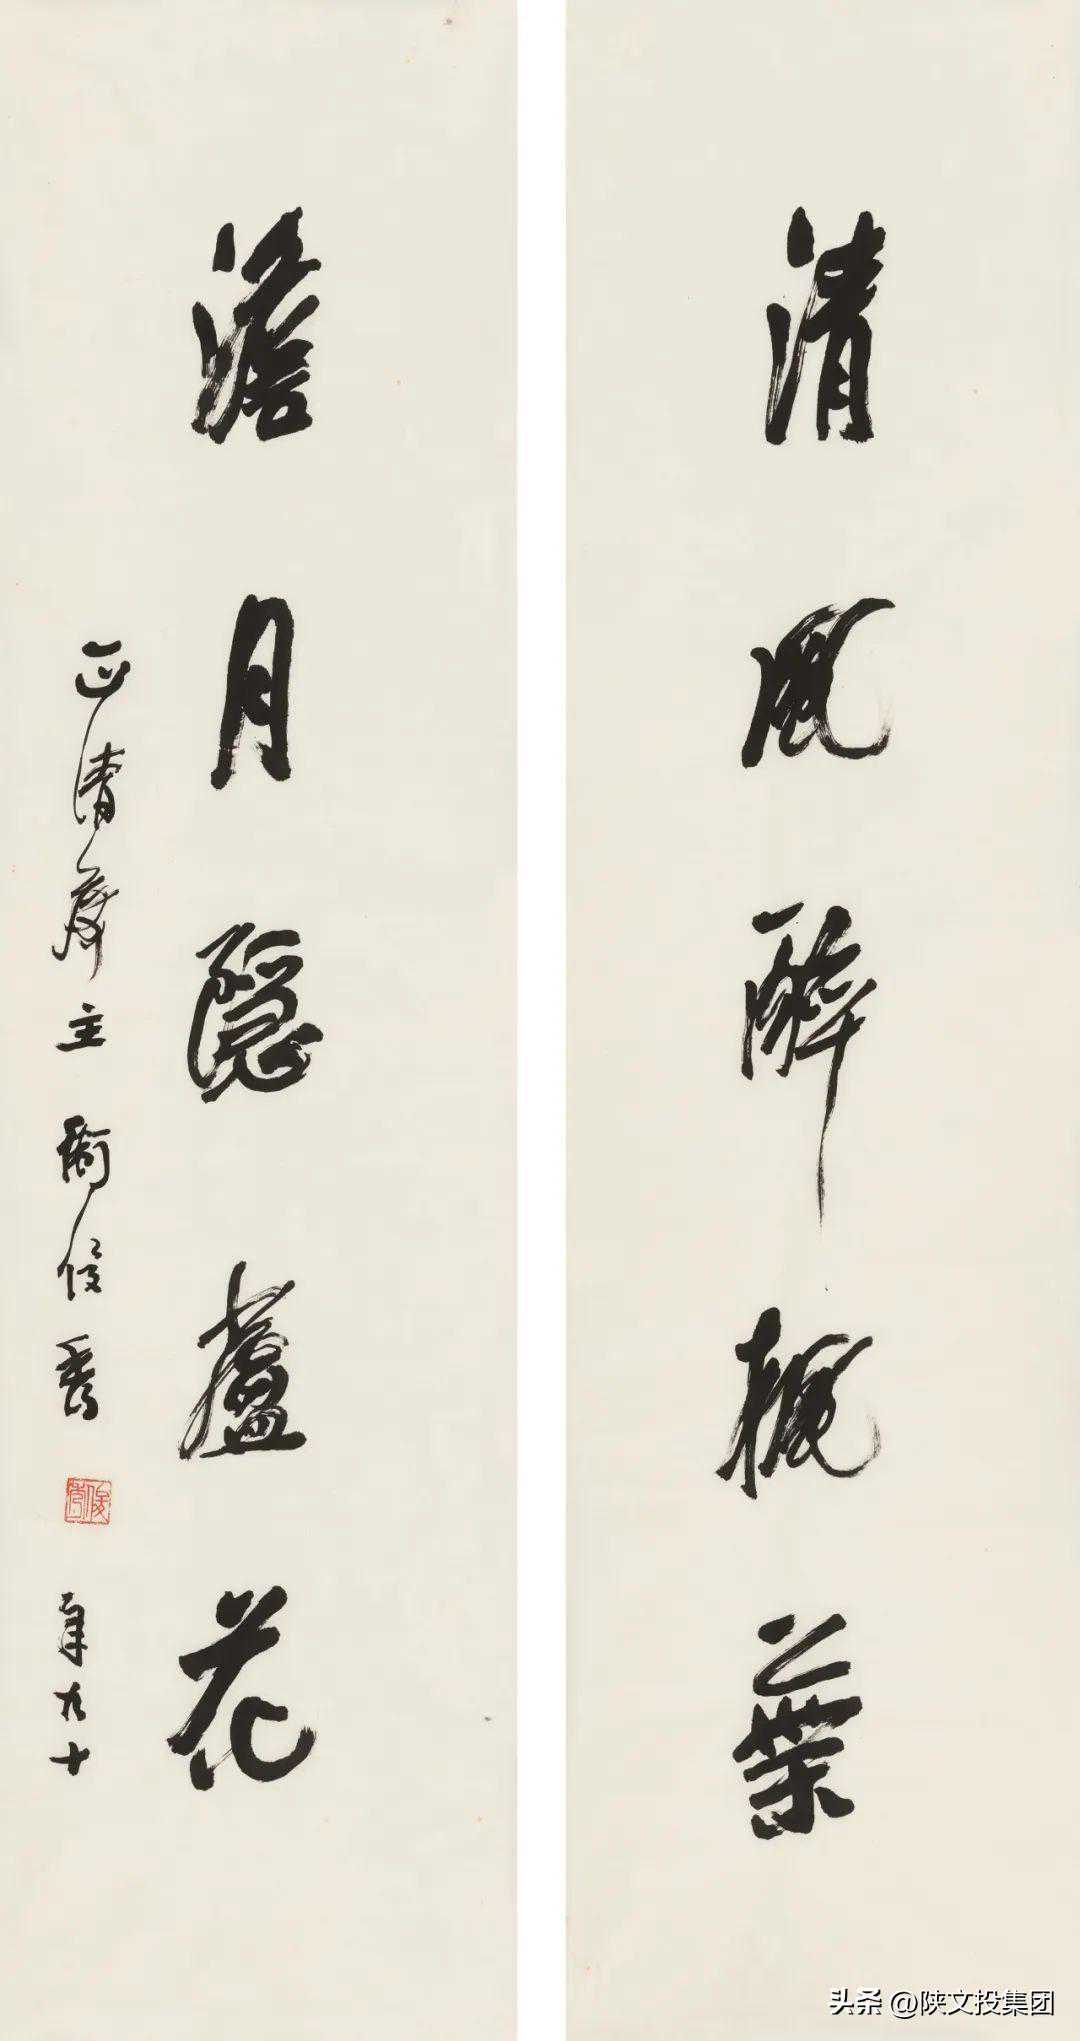 清風醉楓葉
澹月隱蘆花
正清齋主 衛俊秀
年九十
头条 @陕文投集团